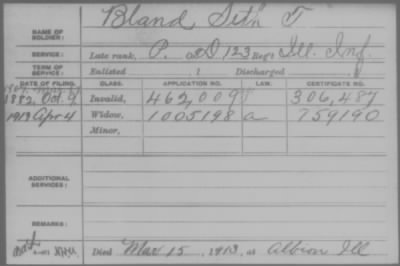 Bland Seth T
NAME OF SOLDIER:
SERVICE: Late rank, P. Co. D, 123 Reg't Ill. Inf.
TERM OF SERVICE: Enlisted 1 Discharged 1
DATE OF FILING. CLASS. APPLICATION NO. LAW. CERTIFICATE NO.
1882, Oct. 9 Invalid, 462,009 306,487
1913 Apr 4 Widow, 1005198 a 759190
Minor,
ADDITIONAL SERVICES:
REMARKS:
Died Mar 15, 1913, at Albion Ill